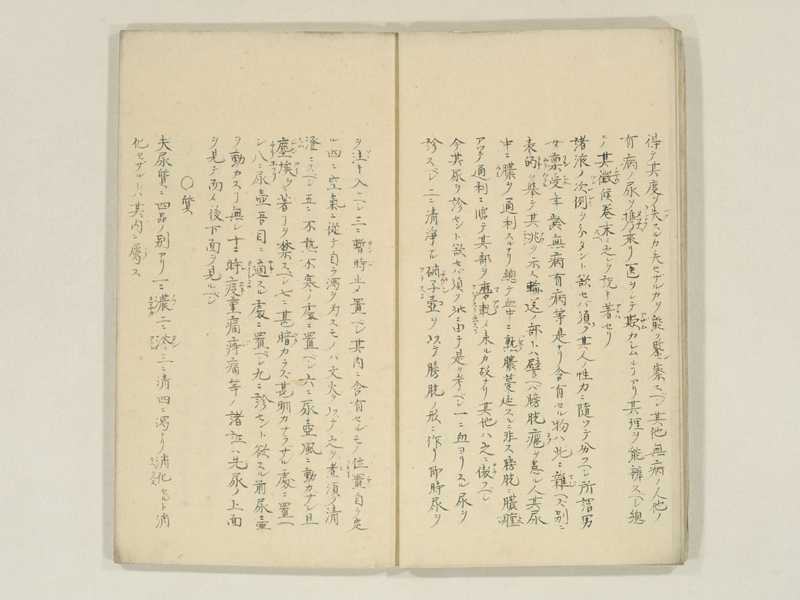 得テ其度ヲ失スルカ失セザルカヲ能ク鑒察スベシ其他無病ノ人他ノ
有病ノ尿ヲ携来リ医ヲシテ欺カシムルコアリ其理ヲ能辨スベシ總
テ其徴候巻末ニ之ヲ説ト著セリ
諸液ノ次例ヲ分タント欲セバ須ク其人性力ニ隨ツテ分ツベシ所謂男
女禀受年齢無病有病等是ナリ含有セル物ハ此ニ雜ヘズ別ニ
表的ヲ擧テ其兆ヲ示ス輸送ノ部トハ譬ヘバ膀胱瘡ヲ患ル人其尿
中ニ膿ヲ通利スルナリ總テ血中ニ熟膿蔓延スルニ非ス膀胱ニ膿
アツテ通利ニ臨テ其部ヲ磨軋メ来ルカ故ナリ其他ハ之ニ傚スベシ
今其尿ヲ診セント欲セバ須ク此ニ由テ是ヲ考ベシ一ニ血ヨリスル尿ヲ
診スベシ二ニ清浄ナル硝子壷ヲ以テ膀胱ノ形ニ作リ即時尿ヲ
ヲ注キ入ベシ三ニ暫時止メ置ベシ其内ニ含有セルモノ位置自ラ定
ル四ニ空氣ニ從テ自ラ濁ヲ為スモノハ文火ヲ以テ之ヲ煮須ク清
澄ニスベシ五ニ不熱不寒ノ處ニ置ベシ六ニ尿壷風ニ動カザレ且
塵埃ノ著ヲ禁スベシ七ニ甚暗カラズ甚明カナラザル處ニ置ベ
シ八ニ尿壷吾目ニ適スル處ニ置ベシ九ニ診セント欲スル前尿壷
ヲ動カスコ無レ十ニ時疫重痛疼痛等ノ諸証ハ先尿ノ上面
ヲ見テ而メ後下面ヲ見ルベシ
○質
夫尿質ニ四品ノ別アリ一ニ濃二ニ淡三ニ清四ニ濁ナリ消化セルト消
化セザルトハ其内ニ属ス